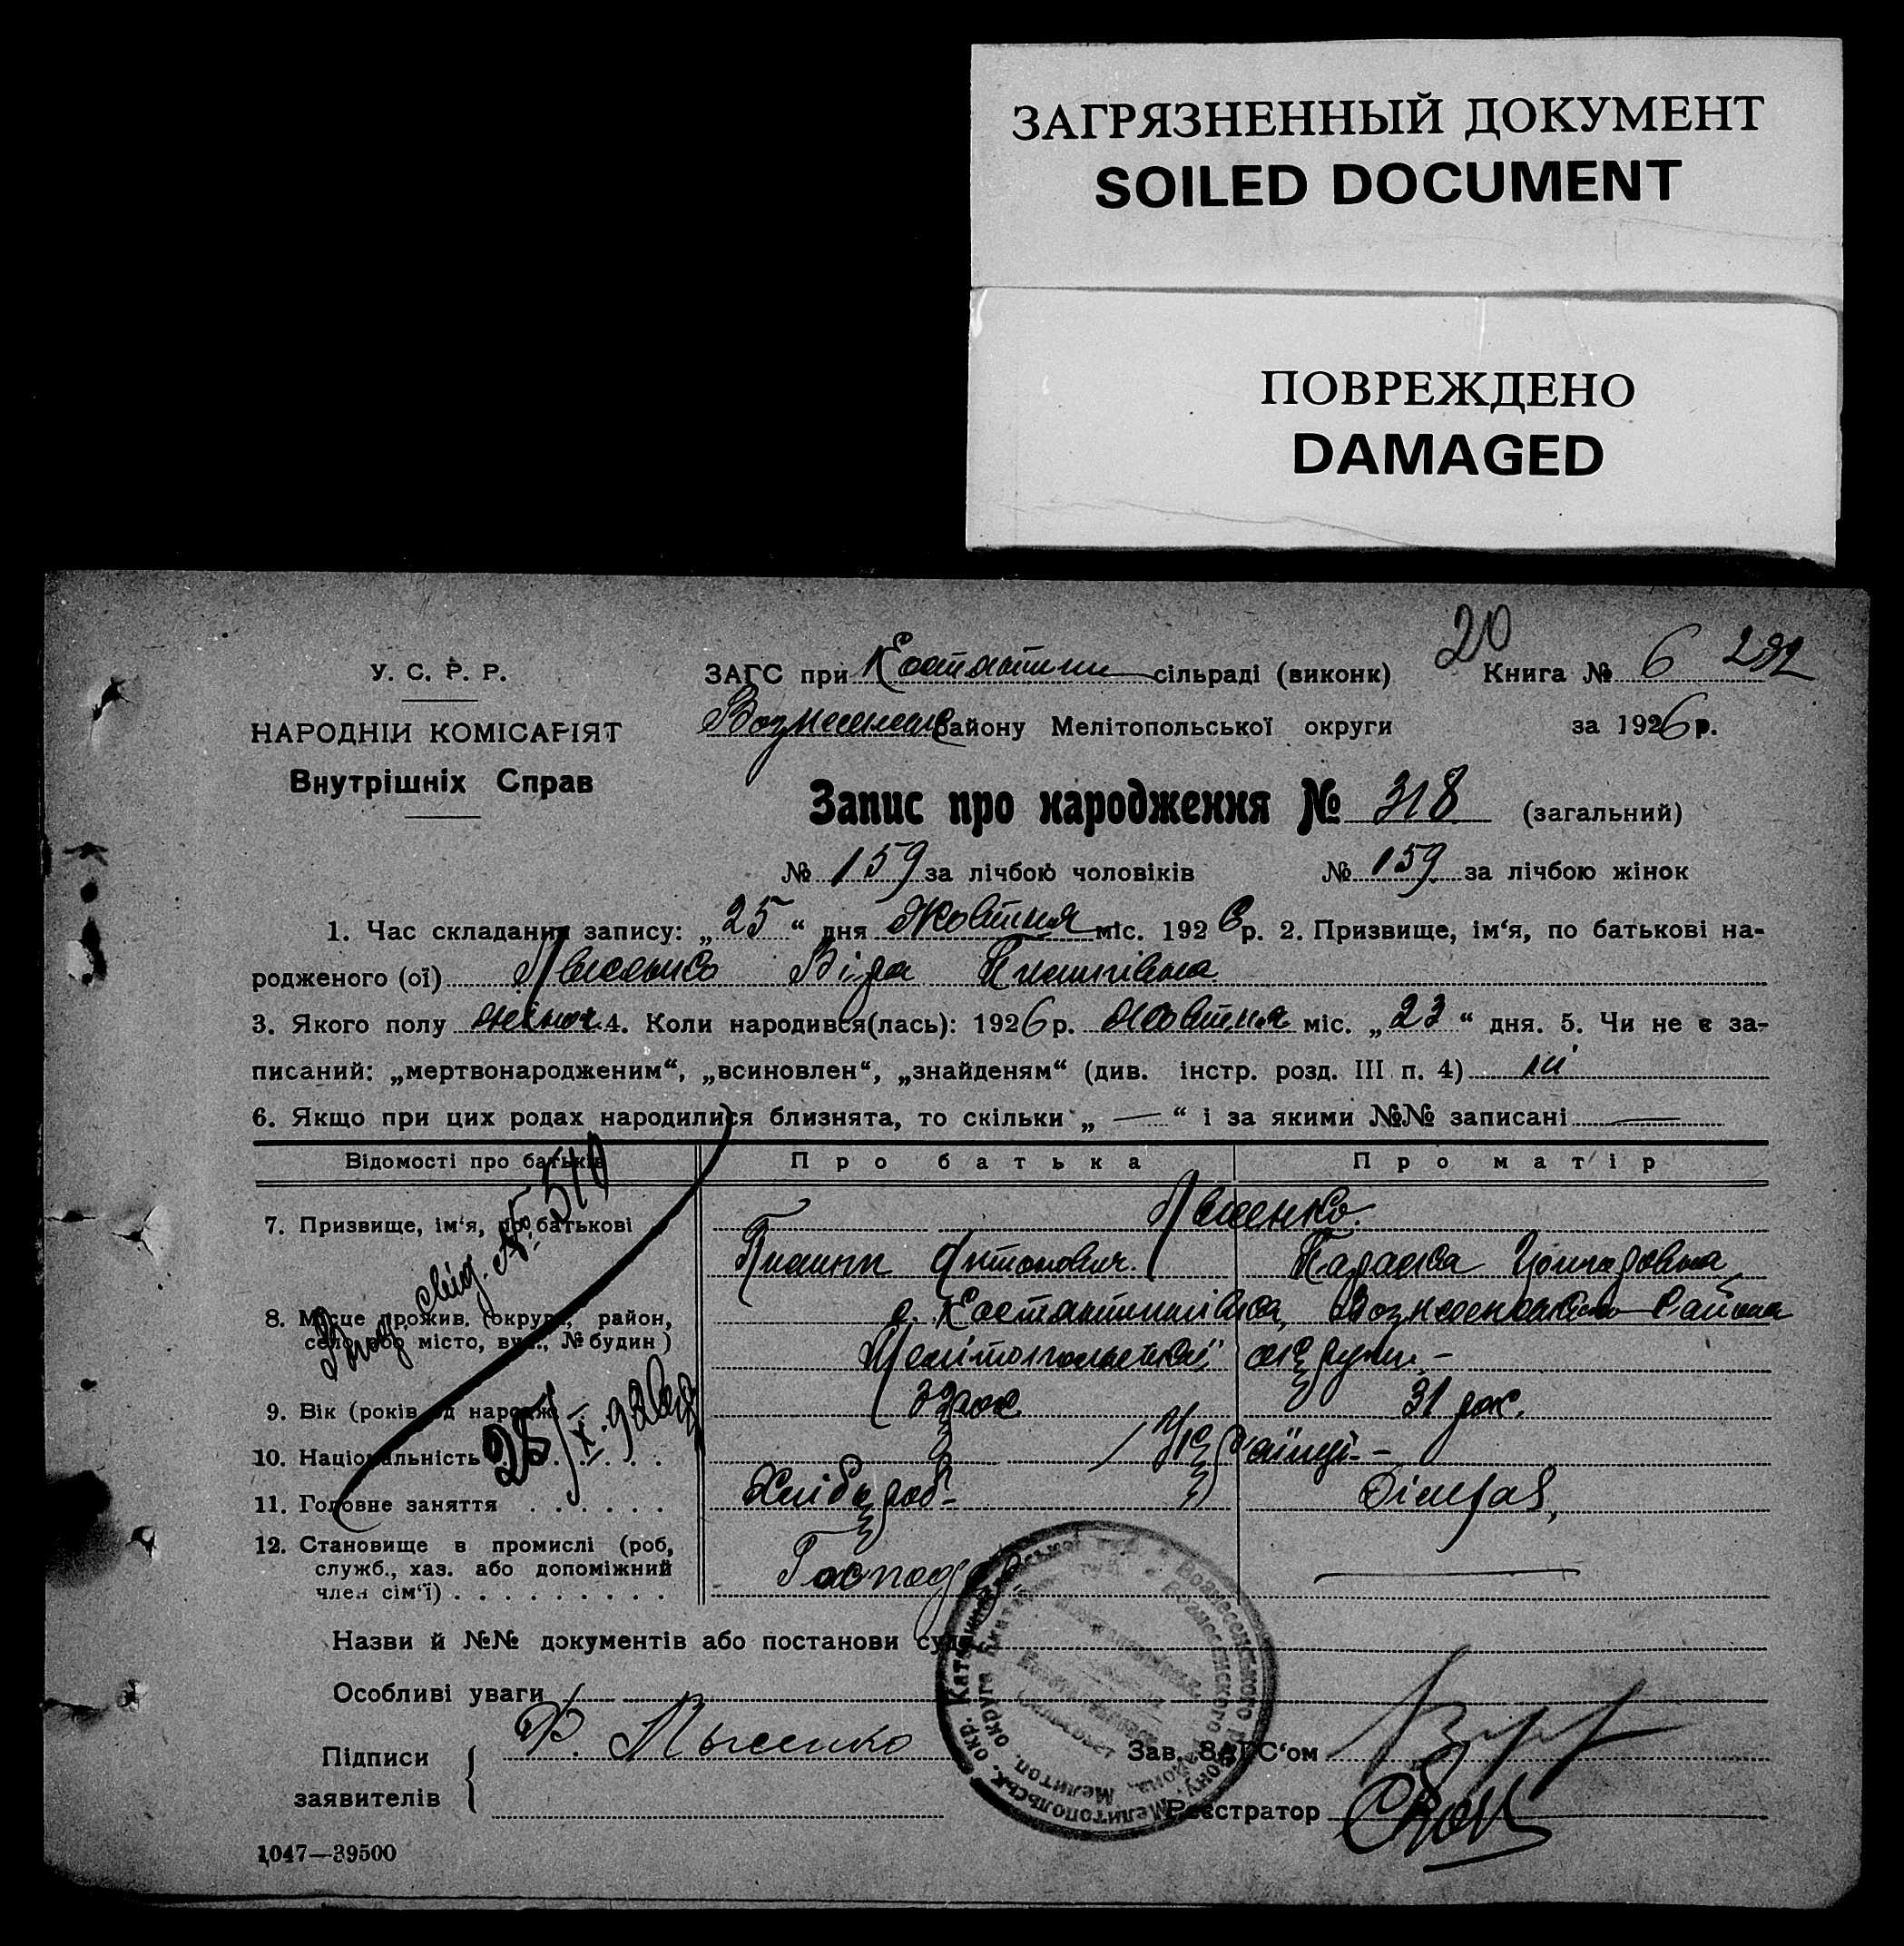 ЗАГРЯЗНЕННЫЙ ДОКУМЕНТ
SOILED DOCUMENT
ПОВРЕЖДЕНО
DAMAGED
20
У. С. Р. Р.
ЗАГС при Костянтин сільраді (виконк) Книга № 6 292
НАРОДНІЙ КОМІСАРІЯТ
Вознесенськ району Мелітопольської округи за 1926 р.
Внутрішніх Справ
Запис про народження № 318 (загальний)
№ 159 за лічбою чоловіків № 159 за лічбою жінок
1. Час складання запису: „25“ дня Жовтня міс. 1926 р. 2. Призвище, ім‘я, по батькові на-
родженого (ої) Лисенко Віра Пилипівна
3. Якого полу жіноч. 4. Коли народився(лась): 1926 р. жовтня міс. „23“ дня. 5. Чи не є за-
писаний: „мертвонародженим“, „всиновлен“, „знайденям“ (див. інстр. розд. III п. 4) ні
6. Якщо при цих родах народилися близнята, то скільки „ — “ і за якими №№ записані —
Відомості про батьків Про батька Про матір
7. Призвище, ім‘я, по батькові Лисенко.
Пилип Антонович Параска
8. Місце прожив. (округа, район, с. Костянтинівка, Вознесенського Району
село або місто, вул., № будин) Мелітопольської округи. -
9. Вік (років від народж. 31 рок.
10. Національність Українці -
11. Головне заняття Хлібороб -
12. Становище в промислі (роб, Господар
служб., хаз. або допоміжний
член сім‘ї)
Вид. свід. № 510
25/X. 926 р
Назви й №№ документів або постанови суду
Особливі уваги
Підписи Лысенко Зав. ЗАГС‘ом
заявителів Реєстратор
1047—39500